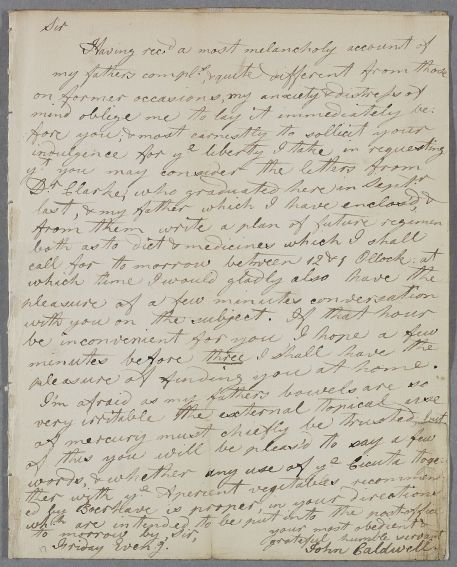 Sir
Having recd a most melancholy account of
my fathers complt, & quite different from those
on former occasions, my anxiety & distress of
mind oblige me to lay it immediately be:
fore you, & most earnestly to sollicit your
indulgence for ye liberty I take in requesting
yt you may consider the letters from
Dr Clarke, who graduated here in Septer
last, & my father which I have enclosed, &
from them write a plan of future regimen
both as to diet & medicines which I shall
call for to morrow between 12 & 1 OClock at
which time I would gladly also have the
pleasure of a few minutes conversation
with you on the subject. If that hour
be inconvenient for you I hope a few
minutes before three I shall have the
pleasure of finding you at home.
I'm afraid as my fathers bowels are so
very irritable the external topical use
of mercury must chiefly be trusted, but
of this you will be pleas'd to say a few
words, & whether any use of ye Cicuta toge:
ther with ye Aperient vegetables recommen
ed by Boerhave is proper, in your directions
wch are intended to be put into the postoffice
to morrow by, Sir, your most obedient &
grateful humble servant
Friday Eveng. John Caldwell